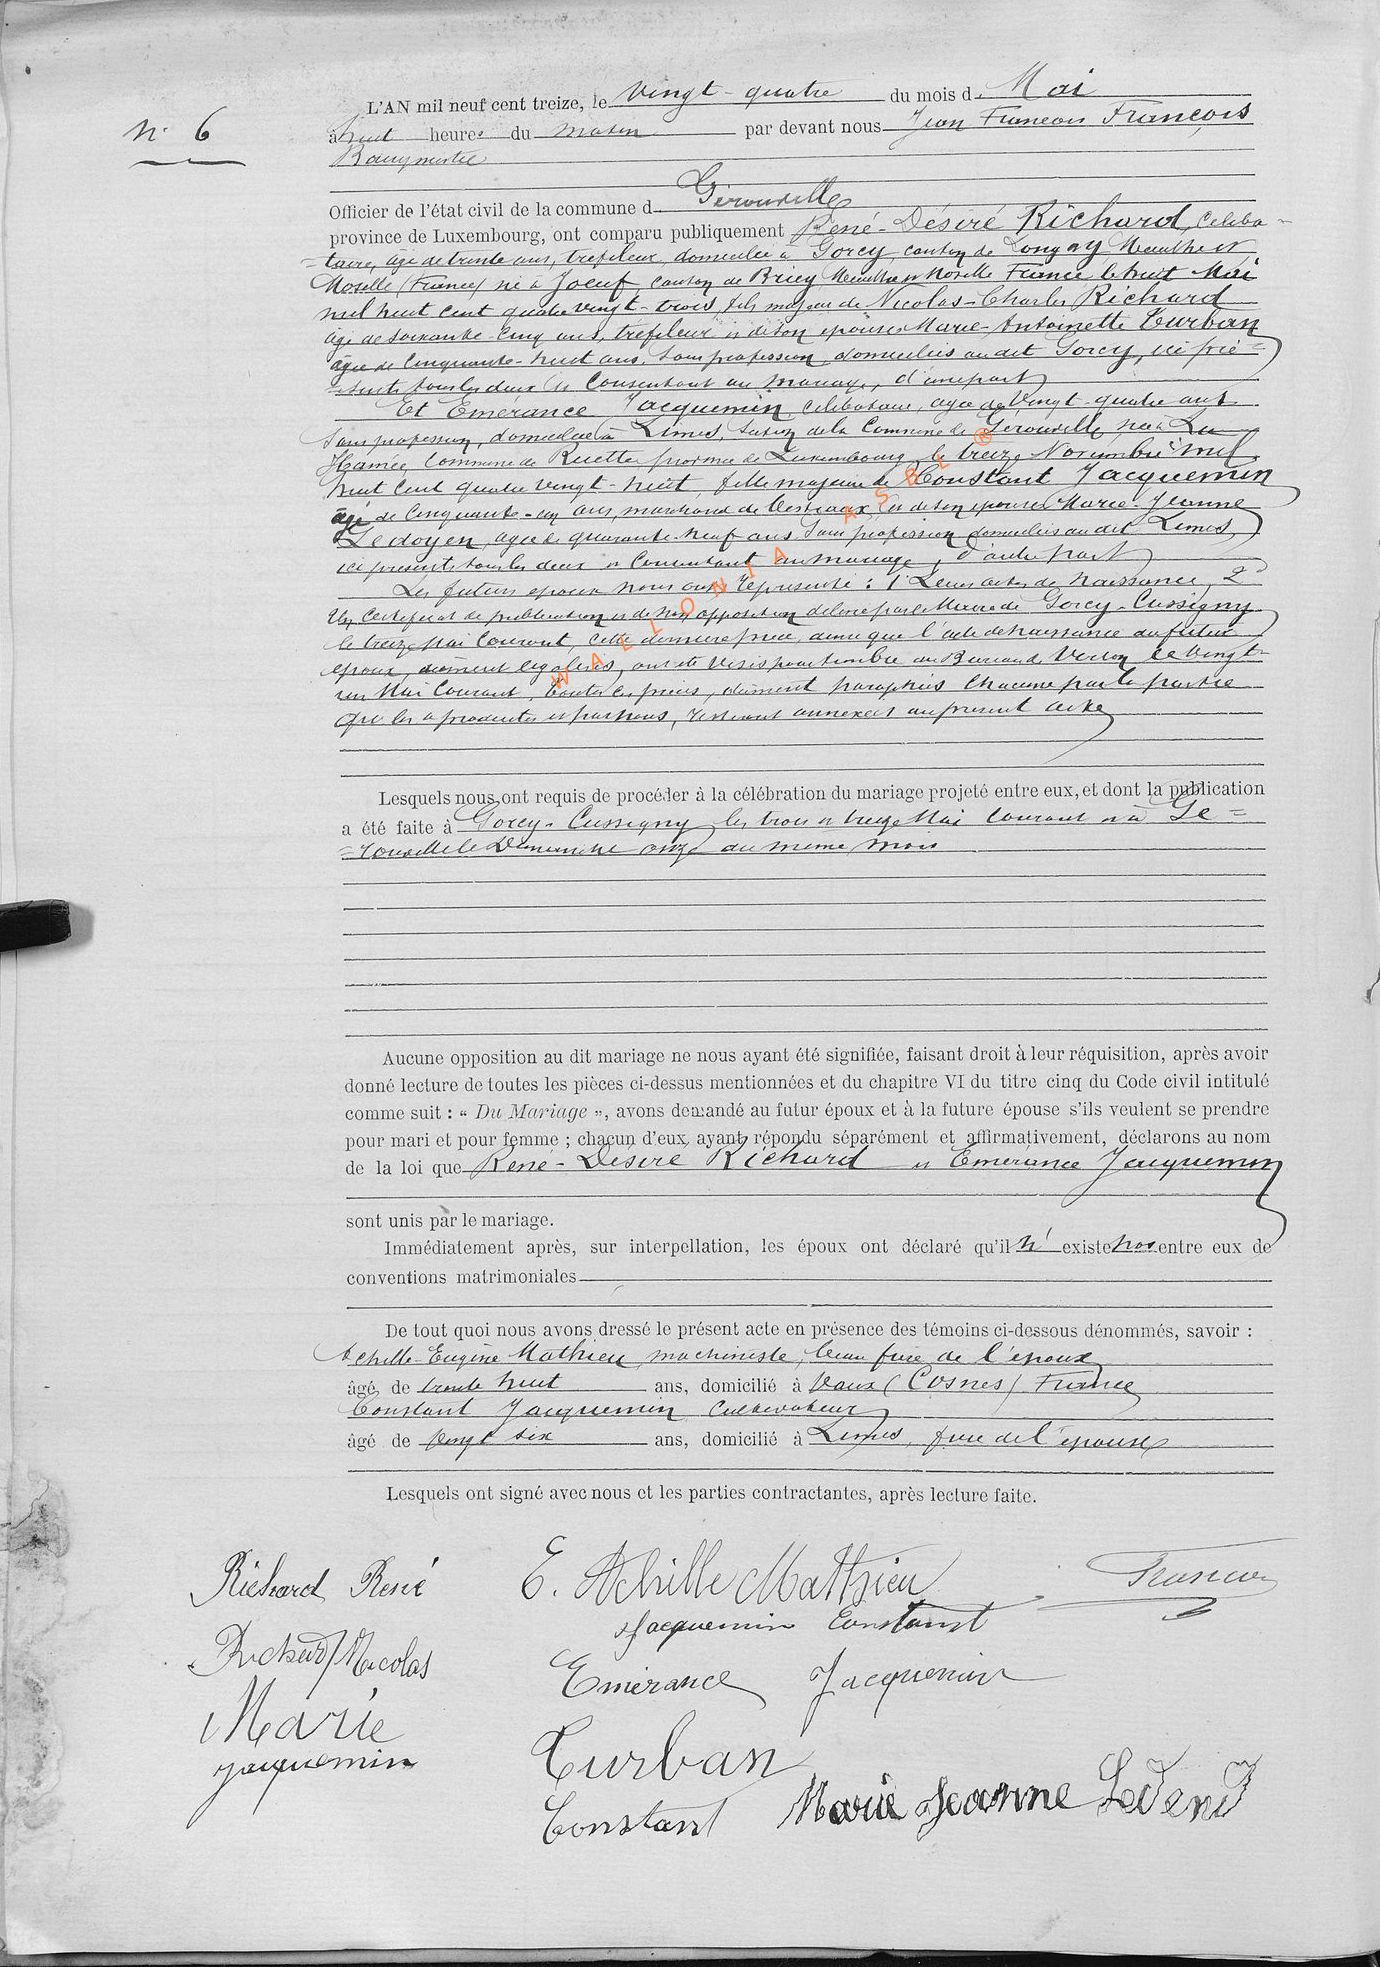 N° 6
L'AN mil neuf cent treize, le vingt-quatre du mois de Mai
à huit heures du matin par devant nous Jean François François
Bourgmestre
Officier de l'état civil de la commune d Gérouville
province de Luxembourg, ont comparu publiquement René-Désiré Richard, céliba-
=taire, âgé de trente ans, tréfileur, domicilié à Gorcy, canton de Longwy Meurthe et
Moselle (France) né à Joeuf, canton de Briey Meurthe et Moselle France, le huit Mai
mil huit cent quatre vingt-trois, fils majeur de Nicolas-Charles Richard
âgé de soixante-cinq ans, tréfileur et de son épouse Marie-Antoinette Turban
âgée de cinquante-huit ans, sans profession, domiciliés au dit Gorcy, ici pré=
=sents tous les deux et consentant au mariage, d'une part
Et Emérance Jacquemin, célibataire, âgée de vingt-quatre ans
sans profession, domiciliée à Limes, section de la commune de Gérouville, née à La
Hamée, commune de Ruette province de Luxembourg, le treize Novembre mil
huit cent quatre vingt-huit, fille majeure de Constant Jacquemin
âgé de cinquante-un ans, marchand de bestiaux, et de son épouse Marie-Jeanne
Ledoyen, âgée de quarante-neuf ans sans profession domiciliés au dit Limes,
ici présents tous les deux et consentant au mariage, d'autre part
Les futurs époux nous ont représenté : 1° Leurs actes de naissance, 2°
Un certificat de publication et de non opposition délivré par le Maire de Gorcy-Cussigny
le treize Mai courant, cette dernière pièce, ainsi que l'acte de naissance du futur
époux, dûment légalisés, ont été visés pour timbre au Bureau de Virton le vingt-
un Mai courant, toutes ces pièces, dûment paraphées chacune par la partie
qui les a produites et par nous, resteront annexées au présent acte
WALLONIA ASBL ®
Lesquels nous ont requis de procéder à la célébration du mariage projeté entre eux, et dont la publication
a été faite à Gorcy-Cussigny les trois et treize Mai courant et à Gé=
=rouville le Dimanche onze du même mois
Aucune opposition au dit mariage ne nous ayant été signifiée, faisant droit à leur réquisition, après avoir
donné lecture de toutes les pièces ci-dessus mentionnées et du chapitre VI du titre cinq du Code civil intitulé
comme suit : « Du Mariage », avons demandé au futur époux et à la future épouse s'ils veulent se prendre
pour mari et pour femme ; chacun d'eux ayant répondu séparément et affirmativement, déclarons au nom
de la loi que René-Désiré Richard et Emérance Jacquemin
sont unis par le mariage.
Immédiatement après, sur interpellation, les époux ont déclaré qu'il n' existe pas entre eux de
conventions matrimoniales
De tout quoi nous avons dressé le présent acte en présence des témoins ci-dessous dénommés, savoir :
Achille-Eugène Mathieu, machiniste, beau frère de l'époux
âgé, de trente huit ans, domicilié à Vaux (Cosnes) France
Constant Jacquemin cultivateur
âgé de vingt six ans, domicilié à Limes, frère de l'épouse
Lesquels ont signé avec nous et les parties contractantes, après lecture faite.
Richard René E. Achille Mathieu François
Jacquemin Constant
Richard Nicolas Emérance Jacquemin
Marie Turban
Jacquemin Constant Marie Jeanne